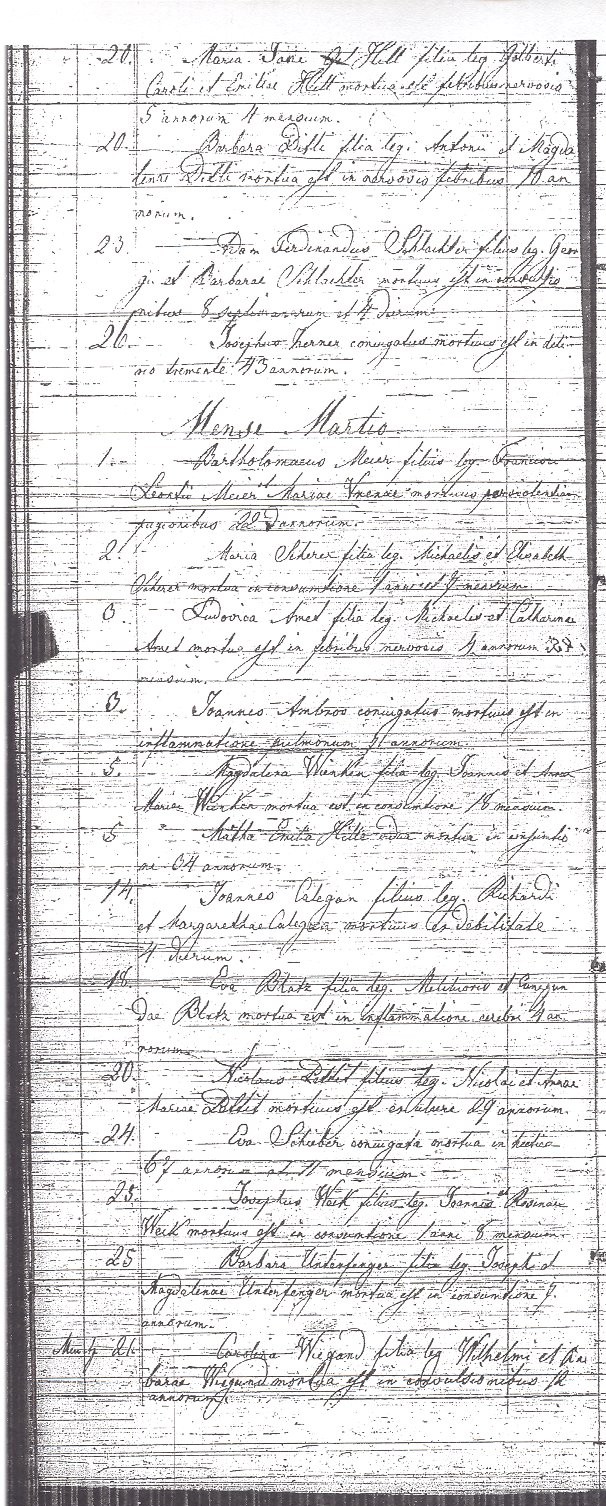 20. Maria Jane Hett filia leg. Gilberti
Caroli et Emiliae Hett mortua est febribus nervosis
5 annorum 4 mensium.
20. Barbara Ditti filia leg. Antonii et Magda
lenae Ditti mortua est in nervosis febribus 18 an
norum.
23. Adam Ferdinandus Schlachter filius leg. Geor
gi et Barbarae Schlachter mortuus est in convulsio
nibus 8 septimanarum et 4 dierum.
26. Josephus Therner coniugatus mortuus est in deli
rio tremente 43 annorum.
Mense Martio.
1. Bartholomaeus Meier filius leg. Francisci
Meier et Mariae mortuus
pugionibus 22 annorum.
2. Maria Scherer filia leg. Michaelis et Elisabeth
Scherer mortua in consumtione 1 anni et 7 mensium
3. Ludovica Amet filia leg. Michaelis et Catharinae
Amet mortua est in febribus nervosis 4 annorum
mensium.
3. Joannes Ambros coniugatus mortuus est in
inflammatione pulmonum 51 annorum.
5. Magdalena Wienken filia leg. Joannis et Annae
Mariae Wienken mortua est in consumtione 18 mensium.
5 Hitte vidua mortua in consumtio
ne 34 annorum.
14. Joannes Calegan filius leg. Richardi
et Margarethae Calegan mortuus ex debilitate
4 dierum.
18. Eva Blatz filia leg. Melchioris et Cunegun
dae Blatz mortua est in inflammatione cerebri 4 an
norum.
20. Nicolaus Pettit filius leg. Nicolai et Annae
Mariae Pettit mortuus est ex vulnere 29 annorum.
24. Eva Schieber coniugata mortua in hectica
67 annorum et 11 mensium.
25. Josephus Weik filius leg. Joannis et Rosinae
Weik mortuus est in consumtione 1 anni 8 mensium.
25 Barbara Unterfenger filia leg. Josephi et
Magdalenae Unterfenger mortua est in consumtione 7
annorum.
21. Carolina Wiegand filia leg Wilhelmi et Bar
barae Wiegand mortua est in convulsionibus 12
annorum.